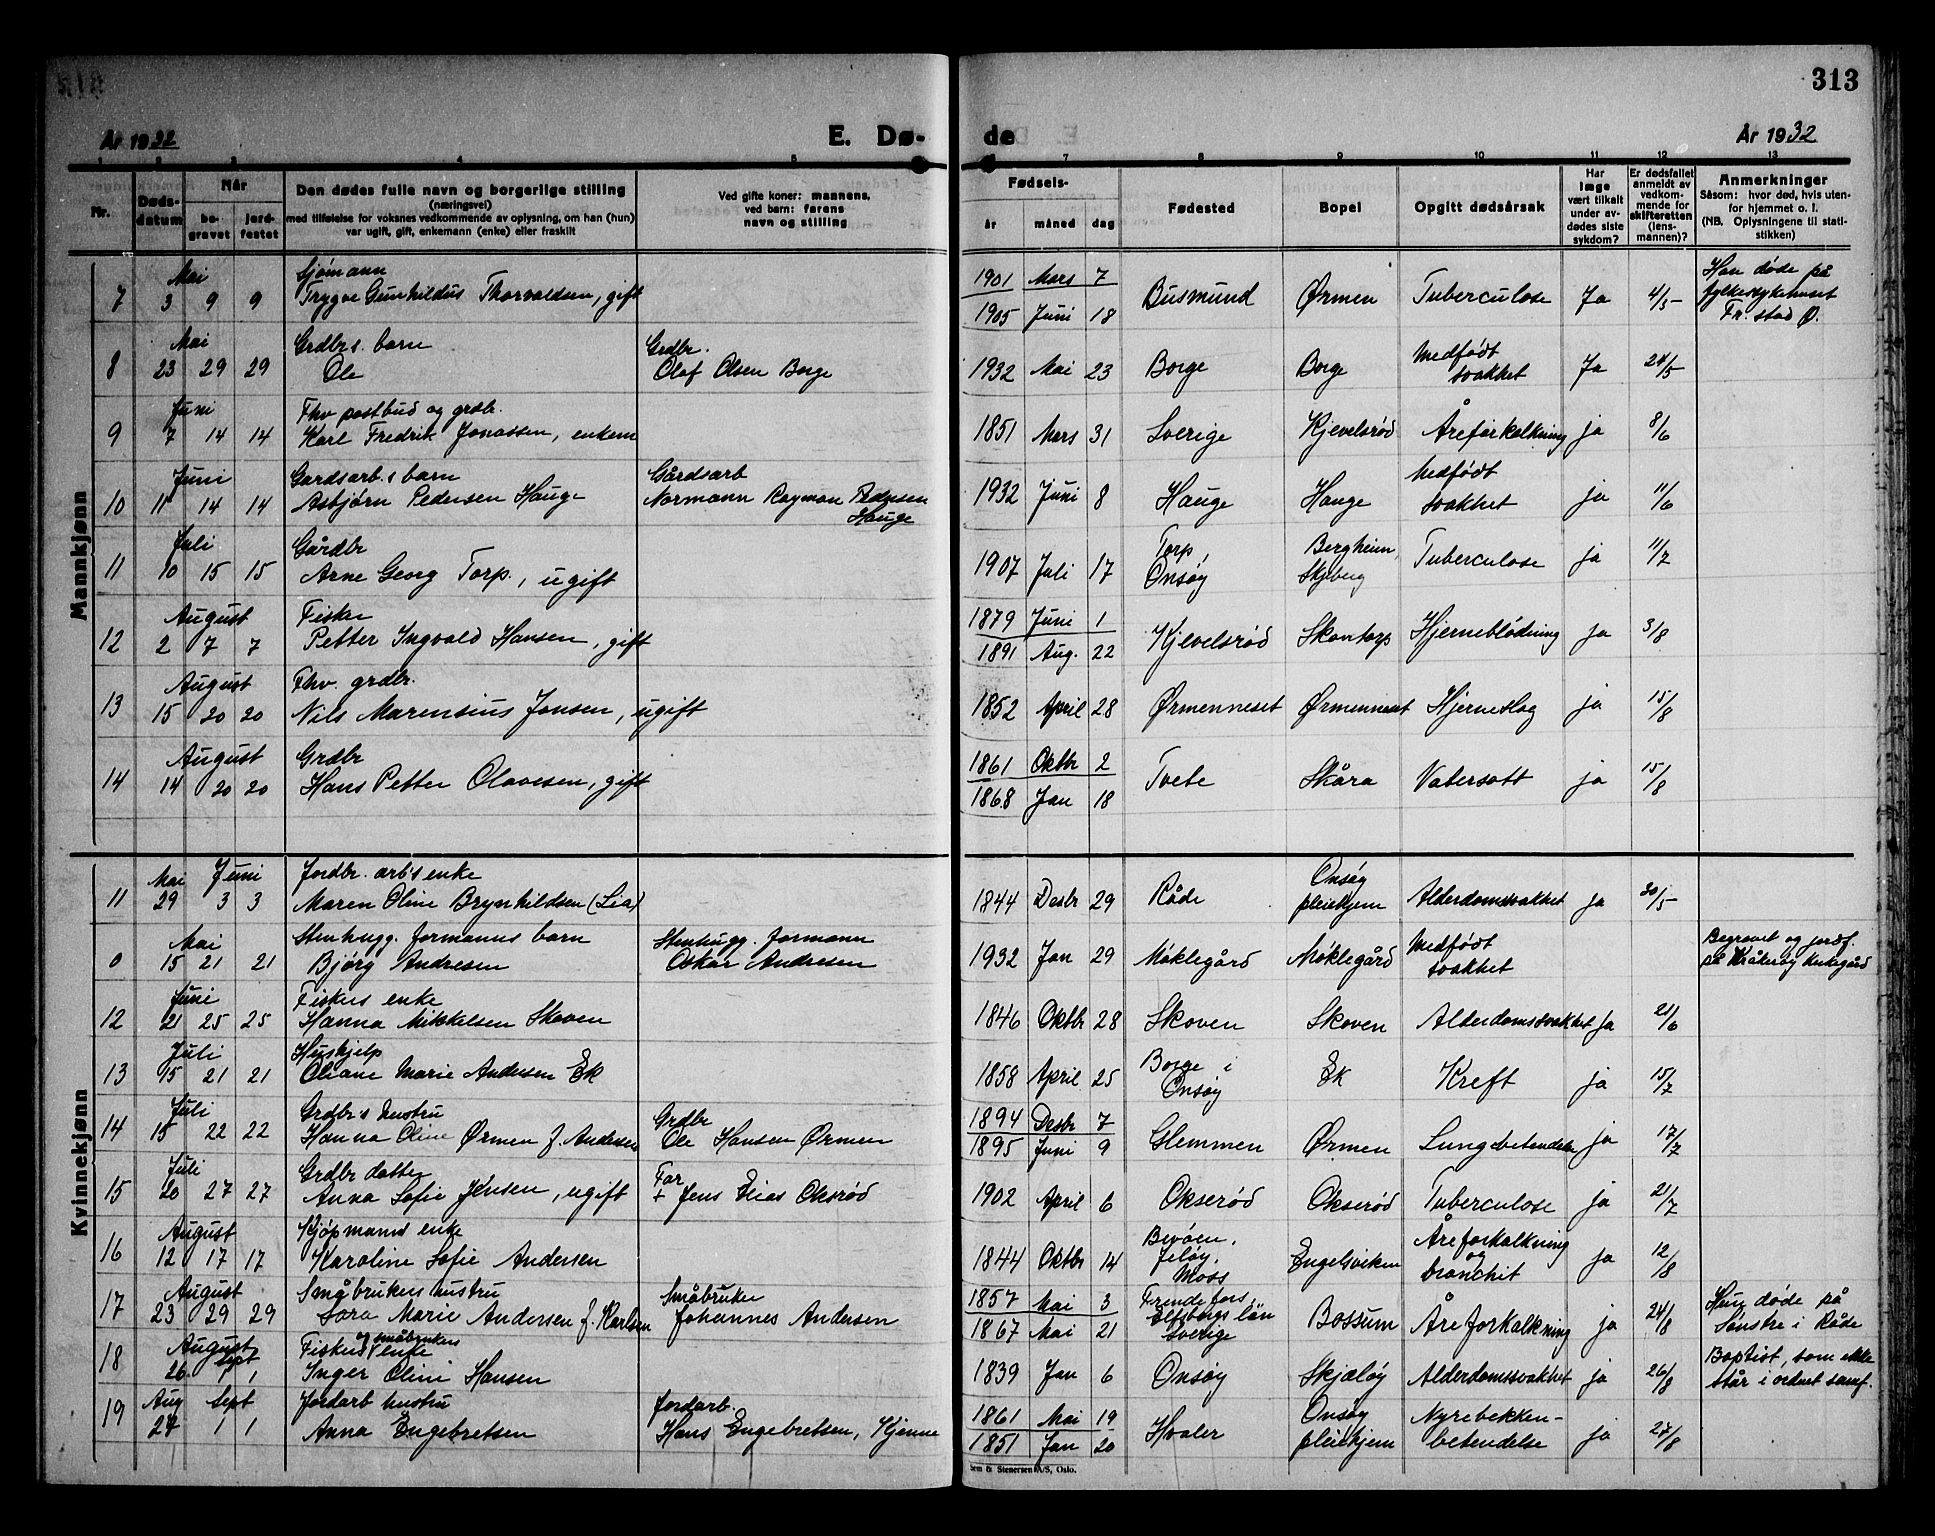 313
År 1932 E. Dø- de År 1932
1 2 3 4 5 7 8 9 10 11 12 13
Nr. Døds-datum Når be-gravet jord-festet
Den dødes fulle navn og borgerlige stilling (næringsvei) med tilføielse for voksnes vedkommende av oplysning, om han (hun) var ugift, gift, enkemann (enke) eller fraskilt
Ved gifte koner: mannens, ved barn: farens navn og stilling
Fødsels- år måned dag
Fødested Bopel Opgitt dødsårsak
Har læge vært tilkalt under av-dødes siste sykdom?
Er dødsfallet anmeldt av vedkom-mende for skifteretten (lens-mannen)?
Anmerkninger
Såsom: hvor død, hvis uten-for hjemmet o. l. (NB. Oplysningene til stati-stikken)
Mannkjønn
Mai Sjømann 1901 Mars 7 Han døde på
7 3 9 9 Trygve Gunhildus Thorvaldsen, gift 1905 Juni 18 Busmund Ørmen Tuberculose Ja 4/5 fylkessykehuset Fr.stad Ø.
Mai Grdbr.s barn Grdbr. Medfødt
8 23 29 29 Ole Olaf Olsen Borge 1932 Mai 23 Borge Borge svakhet Ja 24/5
Juni Fhv postbud og grdbr.
9 7 14 14 Karl Fredrik Jonassen, enkem 1851 Mars 31 Sverige Kjevelsrød Åreforkalkning ja 8/6
Juni Gardsarb.s barn Gårdsarb Medfødt
10 11 14 14 Asbjørn Pedersen Hauge Normann Rayman Pedersen Hauge 1932 Juni 8 Hauge Hauge svakhet ja 11/6
Juli Gårdbr Torp, Bergheim,
11 10 15 15 Arne Georg Torp, ugift 1907 Juli 17 Onsøy Skjeberg Tuberculose ja 11/7
August Fisker 1879 Juni 1
12 2 7 7 Petter Ingvald Hansen, gift 1891 Aug. 22 Kjevelsrød Skontorp Hjerneblødning ja 3/8
August Fhv. grdbr.
13 15 20 20 Nils Marensius Jonsen, ugift 1852 April 28 Ørmenneset Ørmenneset Hjerneslag ja 15/8
August Grdbr 1861 Oktbr 2
14 14 20 20 Hans Petter Olavesen, gift 1868 Jan 18 Tvete Skåra Vatersott ja 15/8
Kvinnekjønn
Mai Juni Jordbr. arb's enke Onsøy
11 29 3 3 Maren Oline Brynhildsen (Lia) 1844 Desbr 29 Råde pleiehjem Alderdomssvakhet ja 30/5
Mai Stenhugg. formanns barn Stenhugg. formann Medfødt Begravet og jordf.
0 15 21 21 Bjørg Andresen Oskar Andresen 1932 Jan 29 Møklegård Møklegård svakhet på Kråkerøy kirkegård
Juni Fiskers enke
12 21 25 25 Hanna Mikkelsen Skoven 1846 Oktbr 28 Skoven Skoven Alderdomssvakhet Ja 21/6
Juli Hushjelp Borge i
13 15 21 21 Oliane Marie Andersen Ek 1858 April 25 Onsøy Ek Kreft ja 15/7
Juli Grdbr's hustru Grdbr 1894 Desbr 7
14 15 22 22 Hanna Oline Ørmen f. Andersen Ole Hansen Ørmen 1895 Juni 9 Glemmen Ørmen Lungebetendelse ja 17/7
Juli Grdbr datter Far
15 20 27 27 Anna Sofie Jensen, ugift + Jens Elias Okserød 1902 April 6 Okserød Okserød Tuberculose ja 21/7
August Kjøpmanns enke Jeløy, Åreforkalkning og
16 12 17 17 Karoline Sofie Andersen 1844 Oktbr 14 Moss Engelsviken bronchit ja 12/8
August Småbrukers hustru Småbruker 1857 Mai 3 Elfsborgs län Hun døde på
17 23 29 29 Sara Marie Andersen f. Karlsen Johannes Andersen 1867 Mai 21 Sverige Bossum Åreforkalkning ja 24/8 i Råde
August Sept Fisker og småbrukers enke Baptist, som ikke
18 26 1 1 Inger Oline Hansen 1839 Jan 6 Onsøy Skjæløy Alderdomssvakhet ja 26/8 står i ordnet samf.
Aug Sept Jordarb hustru Jordarb. 1861 Mai 19 Onsøy Nyrebekken-
19 27 1 1 Anna Engebretsen Hans Engebretsen, Kjenne 1851 Jan 20 Hvaler pleiehjem betendelse ja 27/8
Sem & Stenersen A/S, Oslo.